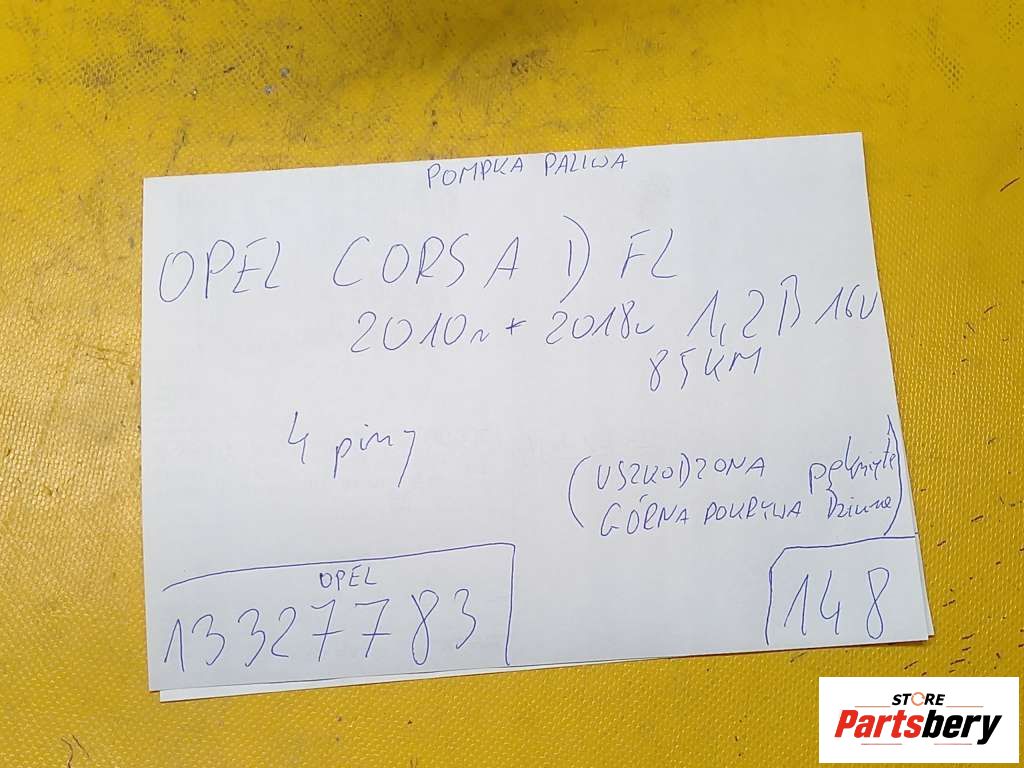 POMPKA PALIWA
OPEL CORSA D FL
2010r + 2018r 1,2B 16V
85KM
4 piny
(USZKODZONA pęknięte
GÓRNA POKRYWA
OPEL
13327783
148
STORE
Partsbery